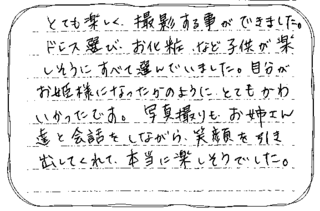 とても楽しく、撮影する事ができました。
ドレス選び、お化粧、など子供が楽
しそうにすべて選んでいました。自分が
お姫様になったかのように、とてもかわ
いかったです。写真撮りも、お姉さん
達と会話をしながら、笑顔を引き
出してくれて、本当に楽しそうでした。